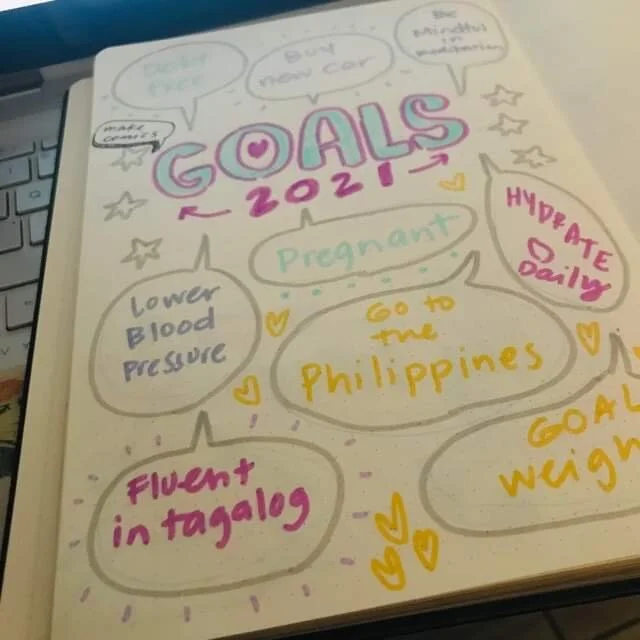 Debt
free
Buy
new car
Be
Mindful
in
meditation
make
comics
GOALS
2021
Pregnant
HYDRATE
Daily
Lower
Blood
Pressure
Go to
the
Philippines
Fluent
in tagalog
GOAL
weigh